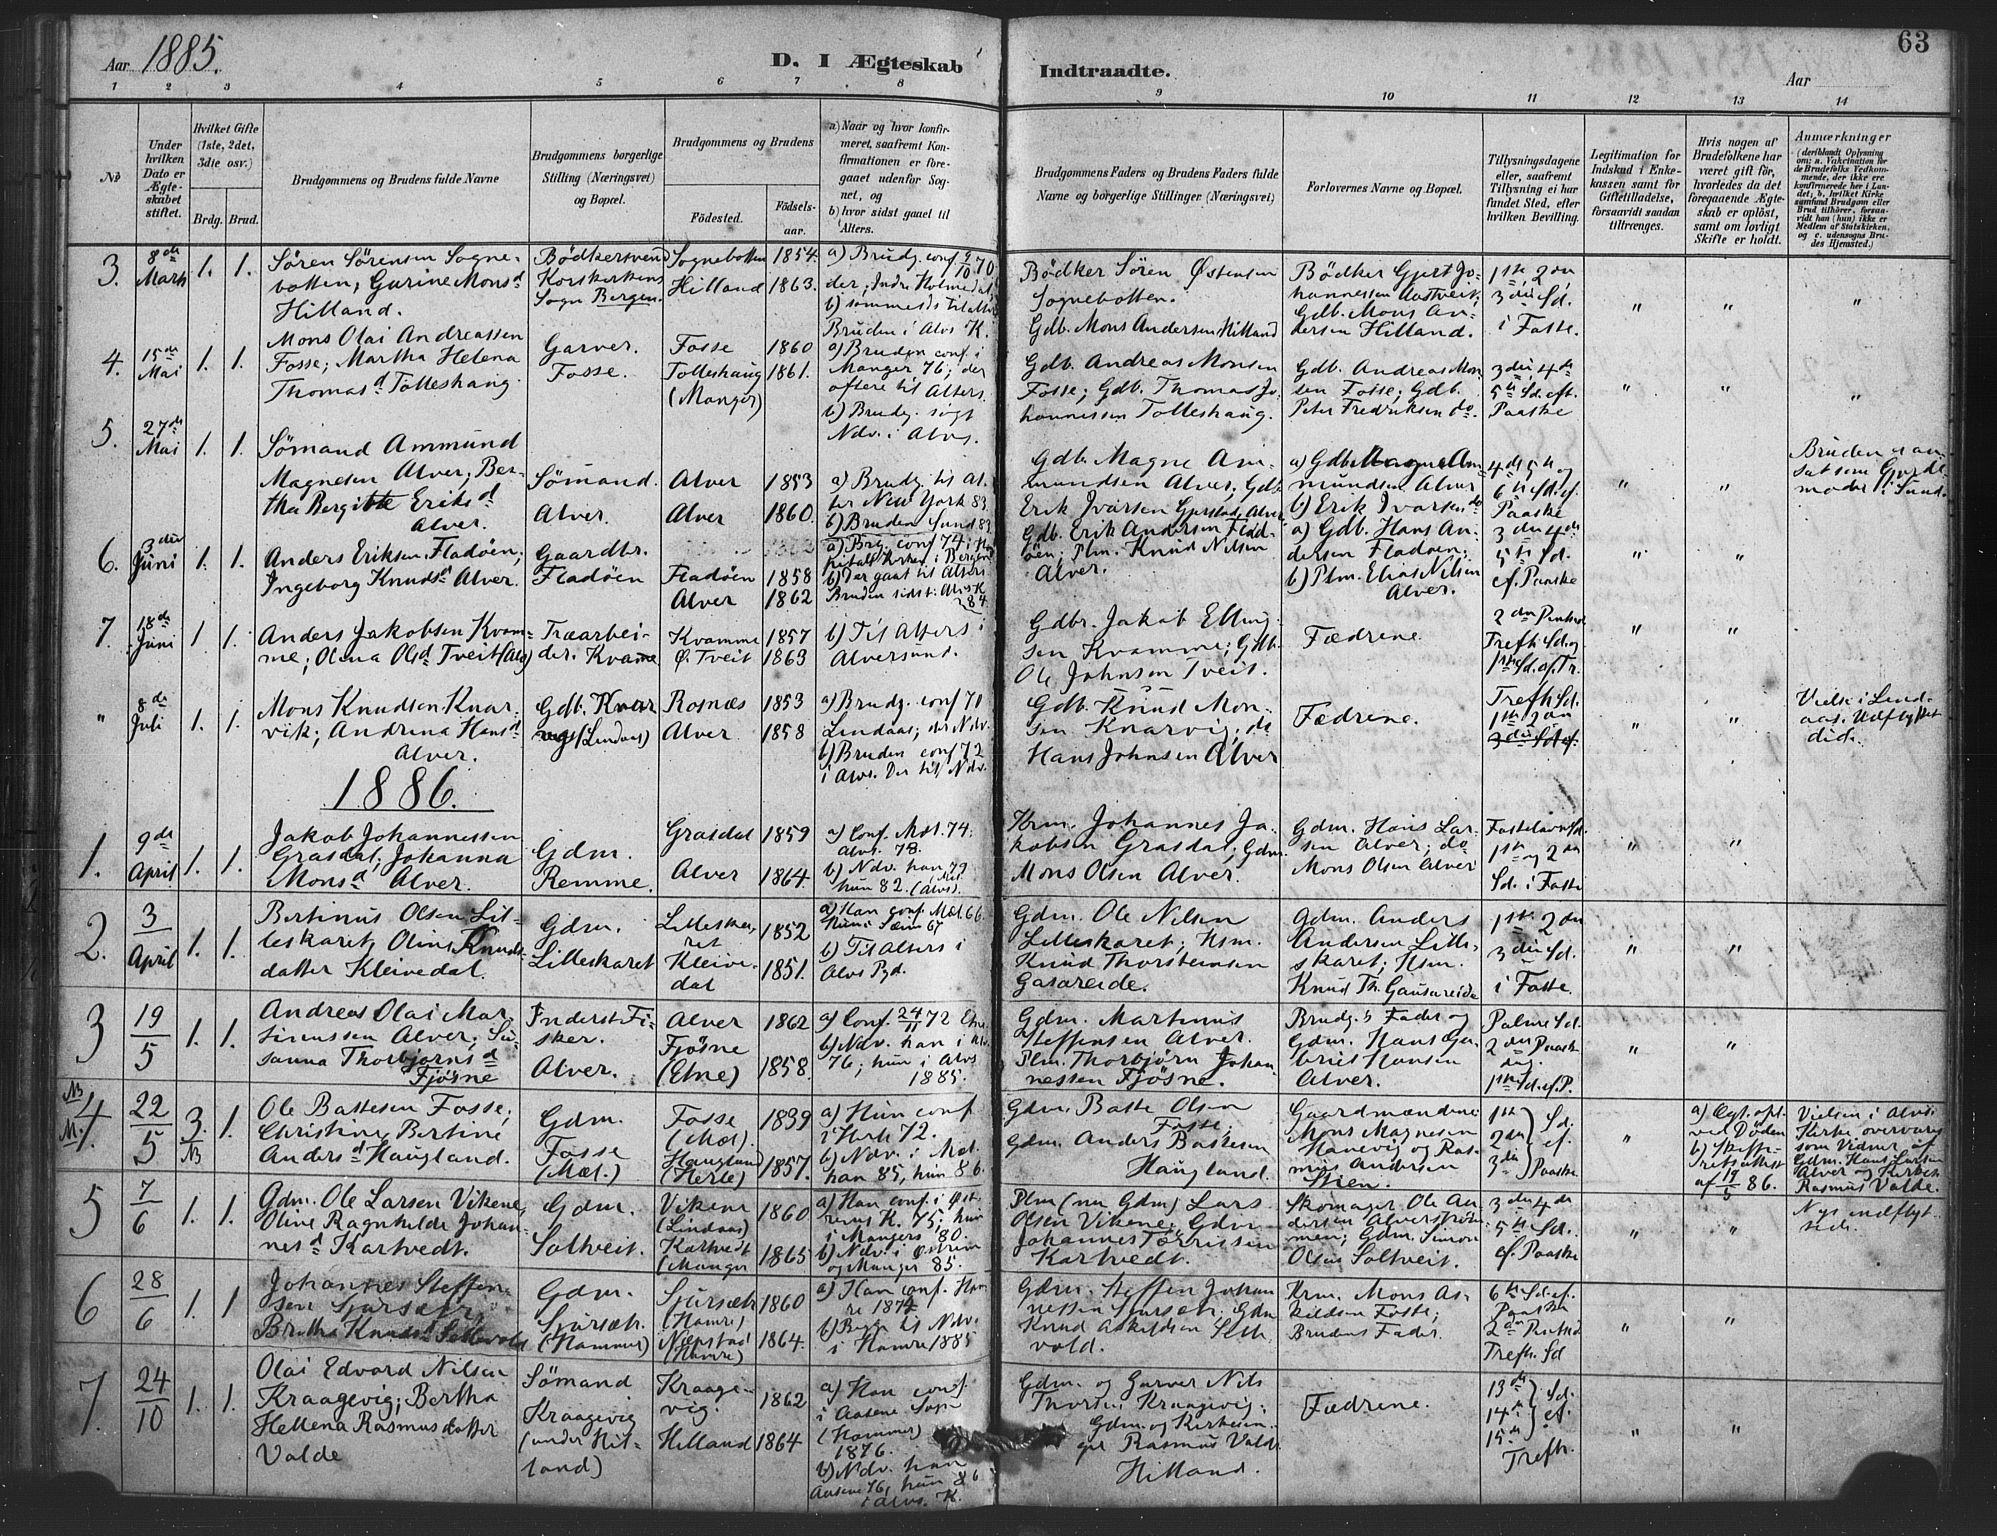 63
Aar 1885.
D. I Ægteskab Indtraadte.
Aar
1 2 3 4 5 6 7 8 9 10 11 12 13 14
№
Under hvilken Dato er Ægteskabet stiftet.
Hvilket Gifte (1ste, 2det, 3die osv.)
Brdg. Brud.
Brudgommens og Brudens fulde Navne
Brudgommens borgerlige Stilling (Næringsvei) og Bopæl.
Brudgommens og Brudens
Födested. Födselsaar.
a) Naar og hvor konfirmeret, saafremt Konfirmationen er foregaaet udenfor Sognet, og
b) hvor sidst gaaet til Alters.
Brudgommens Faders og Brudens Faders fulde Navne og borgerlige Stillinger (Næringsvei)
Forlovernes Navne og Bopæl.
Tillysningsdagene eller, saafremt Tillysning ei har fundet Sted, efter hvilken Bevilling.
Legitimation for Indskud i Enkekassen samt for Giftetilladelse, forsaavidt saadan tiltrænges.
Hvis nogen af Brudefolkene har været gift för, hvorledes da det foregaaende Ægteskab er oplöst, samt om lovligt Skifte er holdt.
Anmærkninger
(deriblandt Oplysning om: a. Vakcination for de Brudefolks Vedkommende, der ikke ere konfirmerede her i Landet; b. hvilket Kirkesamfund Brudgom eller Brud tilhörer, forsaavidt han (hun) ikke er Medlem af Statskirken, og c. udensogns Brudes Hjemsted.)
3. 8de Marts 1. 1.
Sören Sörensen Sognebotten; Gurine Monsd Hilland.
Bödkersvend Korskirkens Sogn Bergen.
Sognebotten 1854.
Hilland 1863.
Bödker Sören Östensen Sognebotten.
Gdb. Mons Andersen Hilland
Bödker Gjert Johannessen Aastveit;
Gdb. Mons Andersen Hilland.
1ste, 2den 3die Sd. i Faste.
4. 15de Mai 1. 1.
Mons Olai Andreassen Fosse; Martha Helena Thomasd Tolleshaug.
Garver. Fosse.
Fosse 1860
Tolleshaug (Manger) 1861.
a) Bruden conf. i Manger 76; der oftere til Alters.
b) Brudg. søgt Ndv. i Alvs.
Gdb. Andreas Monsen Fosse; Gdb. Thomas Johannessen Tolleshaug.
Gdb. Andreas Monsen Fosse; Gdb. Peter Fredriksen do.
3die, 4de 5te Sd. eft. Paaske
5. 27de Mai 1. 1.
Sømand Ammund Magnesen Alver; Bertha Bergitte Eriksd Alver.
Sømand. Alver.
Alver 1853
Alver 1860.
a) Brudg. til Alter New York 83.
b) Bruden Sund 83
Gdb. Magne Ammundsen Alver; Gdb. Erik Ivarsen
a) Gdb. Magne Ammundsen Alver
b) Erik Ivarsen do
4de, 5te og 6te Sd. ef. Paaske
6. 3die Juni 1. 1.
Anders Eriksen Fladöen; Ingeborg Knudsd Alver.
Gaardbr. Fladöen
Fladöen 1858
Alver 1862
Gdb. Erik Andersen Fladöen; Plm. Knud Nilsen Alver.
a) Gdb. Hans Andersen Fladöen;
b) Plm. Elias Nilsen Alver.
3die 4de 5te Sd. ef. Paaske
7. 18de Juni 1. 1.
Anders Jakobsen Kvamme; Olina Olsd Tveit (Alv)
Træarbeider. Kvamme
Kvamme 1857
Ø. Tveit 1863
b) Til Alters i Alversund.
Gdbr. Jakob Ellingsen Kvamme; Gdb. Ole Johnsen Tveit.
Fædrene.
2den Pintsed. Trefh. Sd. og 1ste Sd. ef. Tr.
" 8de Juli 1. 1.
Mons Knudsen Knarvik; Andrina Hansd Alver.
Gdb. Knarvig (Lindaas)
Rosnæs 1853
Alver 1858
a) Brudg. conf 70 Lindaas; der Ndv.
b) Bruden conf 72 i Alvs. Der til Ndv.
Gdb. Knud Monsen Knarvig; do Hans Johnsen Alver
Fædrene.
Trefh. Sd. 1ste 2den 3die Sd. ef.
Vielse i Lindaas. Udflyttet did.
1886.
1. 9de April 1. 1.
Jakob Johannessen Grasdal; Johanna Monsd Alver.
Gdm. Remme.
Grasdal 1859
Alver 1864.
a) Conf. Mæl. 74; Alvs. 78.
b) Ndv. han Mæl. 79 hun 82. (Alvs).
Krm. Johannes Jakobsen Grasdal; Gdm. Mons Olsen Alver.
Gdm. Hans Larsen Alver; do Mons Olsen Alver
Fastelavns Sd. 1ste og 2den Sd. i Faste
2. 3/April 1. 1.
Bertinus Olsen Lilleskaret; Olina Knudsdatter Kleivedal.
Gdm. Lilleskaret
Lilleskaret 1852
Kleivedal 1851.
a) Han conf. Mæl. 66. Hun i Sæim 67
b) Til Alters i Alvs
Gdm. Ole Nilsen Lilleskaret; Hsm. Knud Thorsteinsen Gasareide.
Gdm. Anders Andersen Lilleskaret; Hsm. Knud Th. Gausereide
1ste 2den 3die Sd. i Faste.
3 19/5 1. 1.
Andreas Olai Martinussen Alver; Susanna Thorbjørnsd Fjösne
Inderst Fisker. Alver.
Alver 1862
Fjösne (Etne) 1858.
a) Conf. 24/11 72 Etne
b) Ndv. han i Alv. 76; hun i Alvs 1885.
Gdm. Martinus Steffensen Alver.
Plm. Thorbjörn Johannessen Fjösne.
Brudg.s Fader og Gdm. Hans Gabriel Hansen Alver.
Palme Sd. 2den Paaskedag. 1ste Sd. ef. P.
4. 22/5 3. NB 1.
Ole Battesen Fosse; Christine Bertine Andersd Haugland.
Gdm. Fosse (Mæl.)
Fosse (Mæl.) 1839
Haugland (Herle) 1857.
a) Hun conf i Herle 72.
b) Ndv. i Mæl. han 85, hun 86.
Gdm. Batte Olsen Fosse; Gdm. Anders Battesen Haugland.
Gaardmændene Mons Magnesen Hanevig og Rasmus Andersen Stien.
1ste 2den 3die Sd. ef. Paaske
a) Egt. opl. ved Døden
b) Skifteretsattest af 19/5 86.
Vielsen i Alvs Kirke overværes som Vidner af Gdm. Hans Larsen Alver og Kirkes. Rasmus Valde.
5 7/6 1. 1.
Gdm. Ole Larsen Vikene, Oline Ragnhilde Johannesd Kartvedt.
Gdm. Soltveit.
Vikene (Lindaas) 1860
Kartvedt (Manger 1865
a) Han conf. i Østrems K. 75; hun i Mangers 80.
b) Ndv. i Østrem og Manger 85.
Plm (nu Gdm) Lars Olsen Vikene; Gdm. Johannes Torrissen Kartvedt.
Skomager Ole Andersen Alverstrømmen; Gdm. Simon Olsen Soltveit.
3die 4de 5te Sd. ef. Paaske
Nys indflyt.
6 28/6 1. 1
Johannes Steffensen Sjursæth; Britha Knudsd
Gdm. Sjursæth. (Hammer)
Sjursæth (Hamre) 1860
1864.
a) Han conf. Hamre 1874
b) Begge til Ndv. i Hamre 1885
Gdm. Steffen Johannessen Sjursæth. Gdm Knud Askildsen
Krm. Mons Askildsen Fosse; Brudens Fader.
6te Sd. ef. Paaske 2den Pintsed Trefh. Sd
7. 24/10 1. 1.
Olai Edvard Nilsen Kraagevig; Bertha Hellena Rasmusdatter Valde
Sømand Kraagevig (under Hilland)
Kraagevig. 1862
Hilland 1864
a) Han conf. i Aasene Sogn (Hammer) 1876.
b) Ndv. han Aasene 76, hun 86 i Alvs. K.
Gdm. og Garver Nils Kraagevig;
Gdm. og Kirkesanger Rasmus Valde Hilland.
Fædrene.
13de 14de 15de Sd. ef. Trefh.